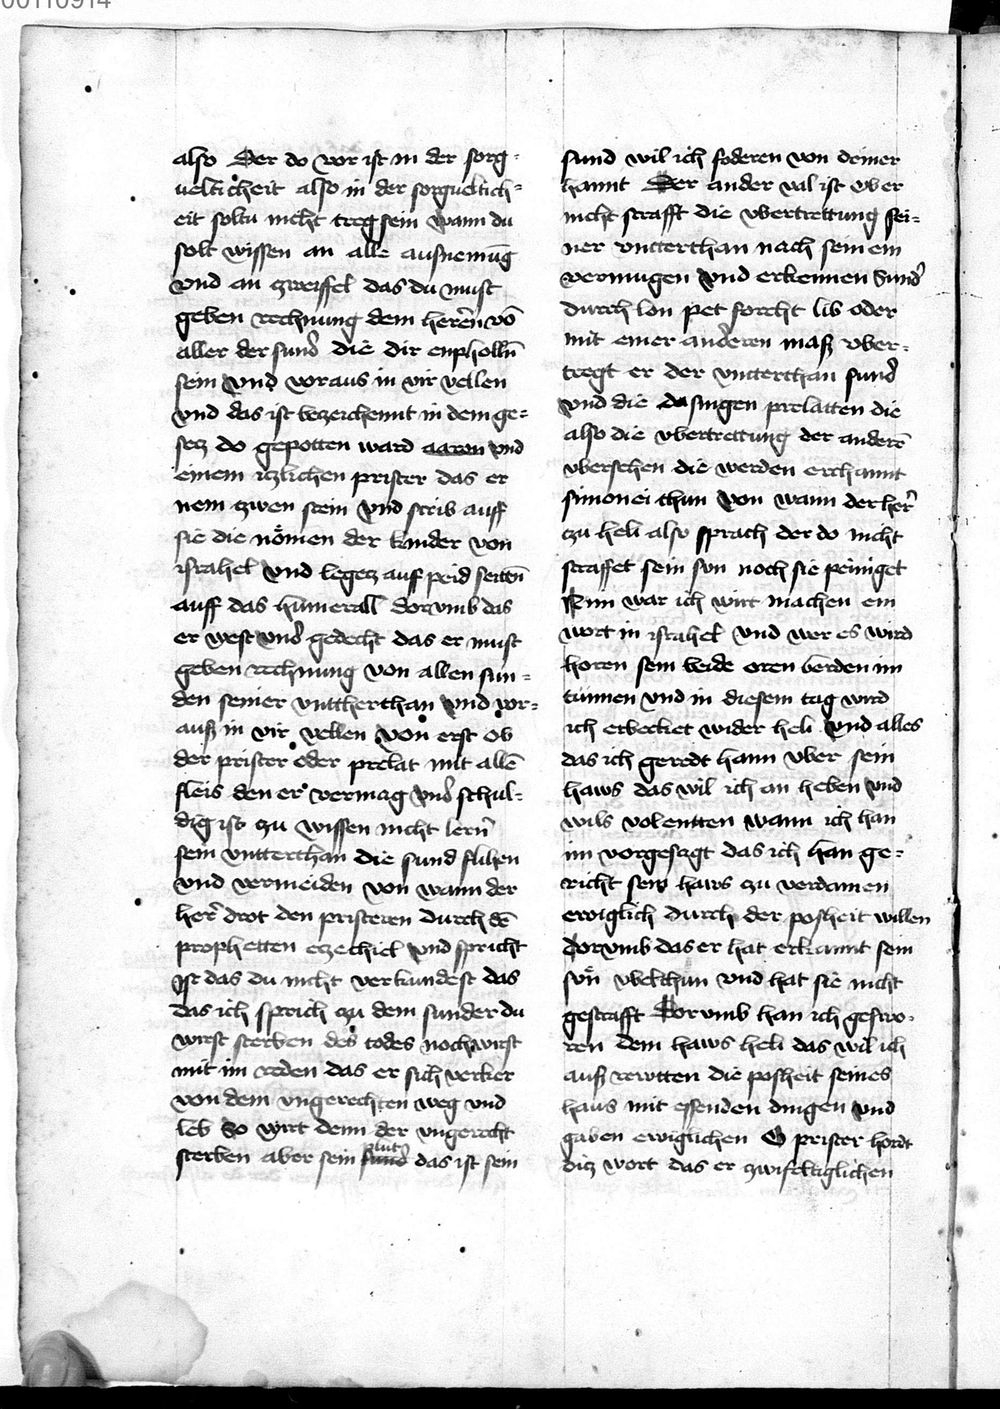 00110914
also Der do vor ist in der sorg-
uelticheit also in der sorgueltich-
eit soltu nicht treg sein wann du
solt wissen an alle ausnemūg
vnd an zweiffel das du must
geben rechnung dem herēn vō
aller der sund die dir enpholhn
sein vnd voraus in vir vellen
vnd das ist bezeichennt in dem ge-
setz do gepotten ward aaron vnd
einem itzlichen prister das er
nem zwen stein vnd screib auff
sie die nömen der kinder von
israhel vnd legetz auf peid seittn
auff das humerall dorvmb das
er west vnd gedecht das er must
geben rechnung von allen sun-
den seiner vnttherthan vnd vor-
auß in vir vellen von erst ob
der prister oder prelat mit allē
fleis den er vermag vnd schul-
dig ist zu wissen nicht lern
sein vntterthan die sund flihen
vnd vermeiden von wann der
her drot den pristeren durch dē
prophetten ezechiel vnd spricht
Ist das du nicht verkundest das
das ich sprich zu dem sunder du
wirst sterben des todes noch wirst
mit im reden das er sich verker
von dem vngerechten weg vnd
leb So wirt denn der vngerecht
sterben aber sein plut das ist sein
sund wil ich foderen von deiner
hannt Der ander val ist ob er
nicht strafft die vbertrettung sei-
ner vntterthan nach seinem
vermugen vnd erkennen Sund
durch lon pet forcht lib oder
mit einer anderen maß vber-
tregt er der vntterthan sund
vnd die dasingen prelatten die
also die vbertrettung der anderē
vbersehen die werden erchannt
simonei thun Von wann der her
zu heli also sprach der do nicht
straffet sein sun noch sie peiniget
Nim war ich wirt machen ein
wort in israhel vnd wer es wird
horen sein beide oren werden im
tunnen vnd in diesem tag wird
ich erbecket wider heli vnd alles
das ich geredt hann vber sein
haws das wil ich an heben vnd
wils volentten wann ich han
im vorgesagt das ich han ge-
richt sein haws zu verdamen
ewiglich durch der posheit willen
dorvmb das er hat erkannt sein
sön vbelthun vnd hat sie nicht
gestrafft Dorvmb han ich geswo-
ren dem haws heli das wil ich
auß rewtten die posheit seines
haus mit essenden dingen vnd
gaben ewiglichen O prister hordt
ditz wort das er zwifeltiglichen